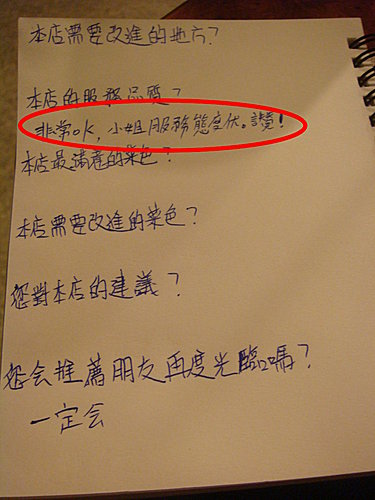 本店需要改進的地方?
本店的服務品質?
非常ok,小姐服務態度优。讚!
本店最滿意的菜色?
本店需要改進的菜色?
您對本店的建議?
您会推薦朋友再度光臨嗎?
一定会